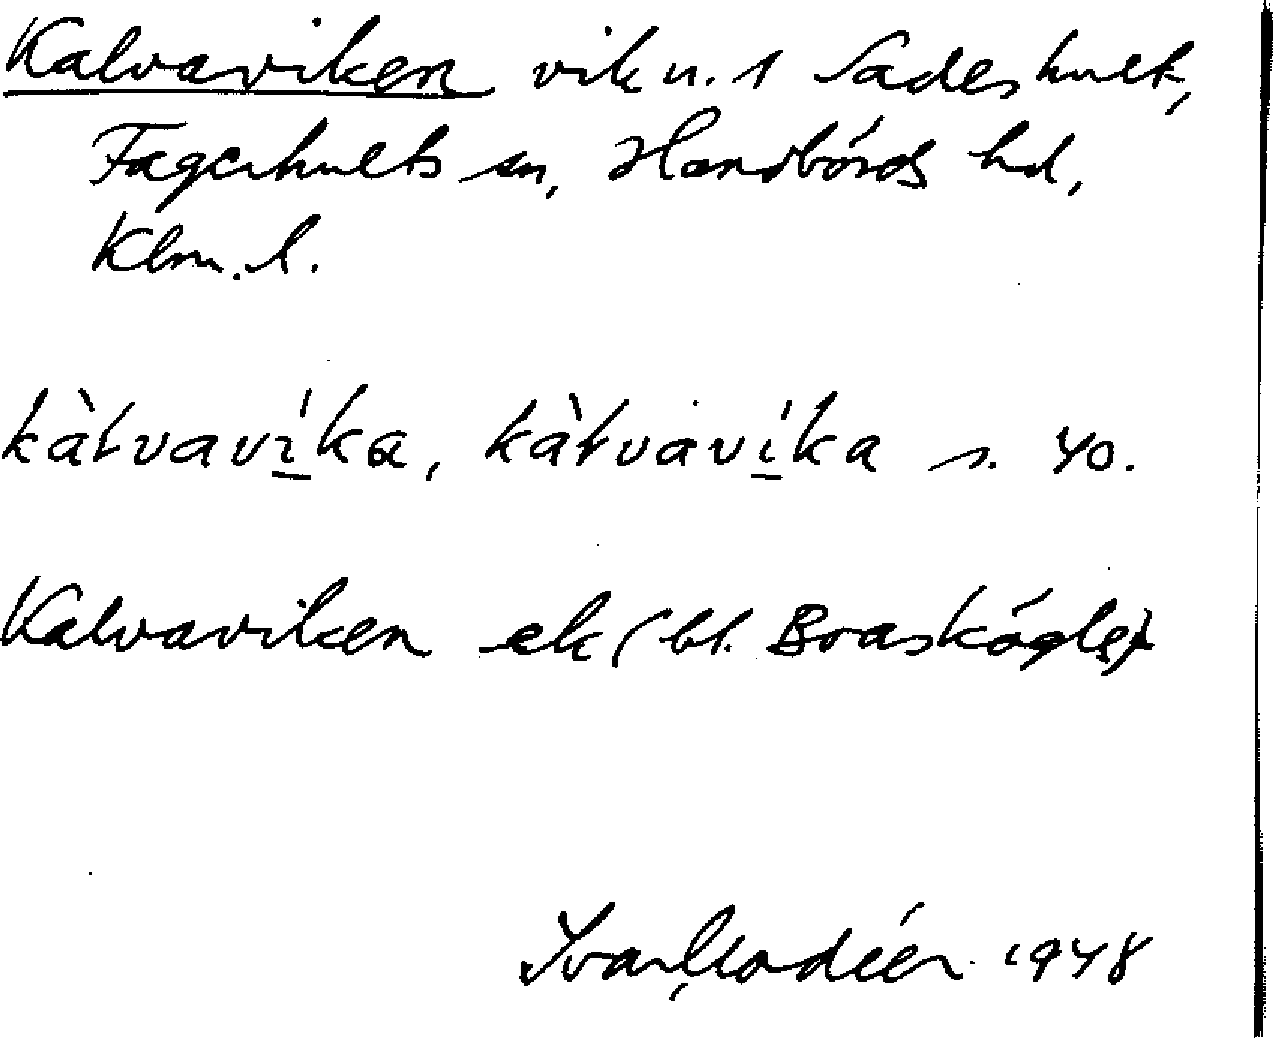 Kalvaviken vik u. 1 Sadeshult,
Fagerhults sn, Handbörds hd,
Klm. l.
kàɫvaví̱ka, kàɫvaví̱ka s. 40.
Kalvaviken ek (bl. Braskögle)
Ivar Modéer 1948